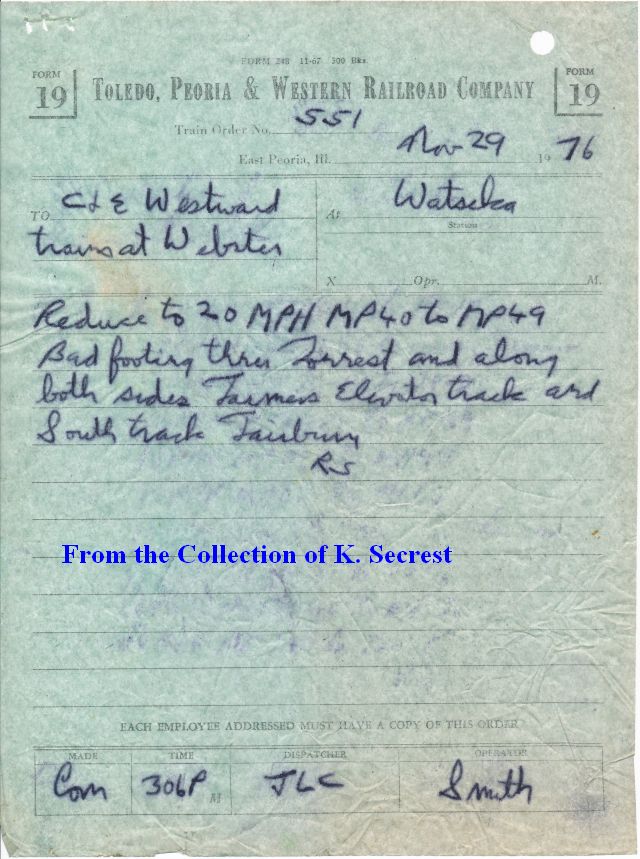 FORM 248 11-67 500 Bks
FORM 19
TOLEDO, PEORIA & WESTERN RAILROAD COMPANY
FORM 19
Train Order No. 551
East Peoria, Ill. Nov 29 19 76
TO C&E Westward
trains at Webster
At Watseka
Station
X Opr. M.
Reduce to 20 MPH MP40 to MP49
Bad footing thru Forrest and along
both sides Farmers Elevator track and
South track Fairbury
RS
From the Collection of K. Secrest
EACH EMPLOYEE ADDRESSED MUST HAVE A COPY OF THIS ORDER
MADE TIME DISPATCHER OPERATOR
Com 306P M JLC Smith